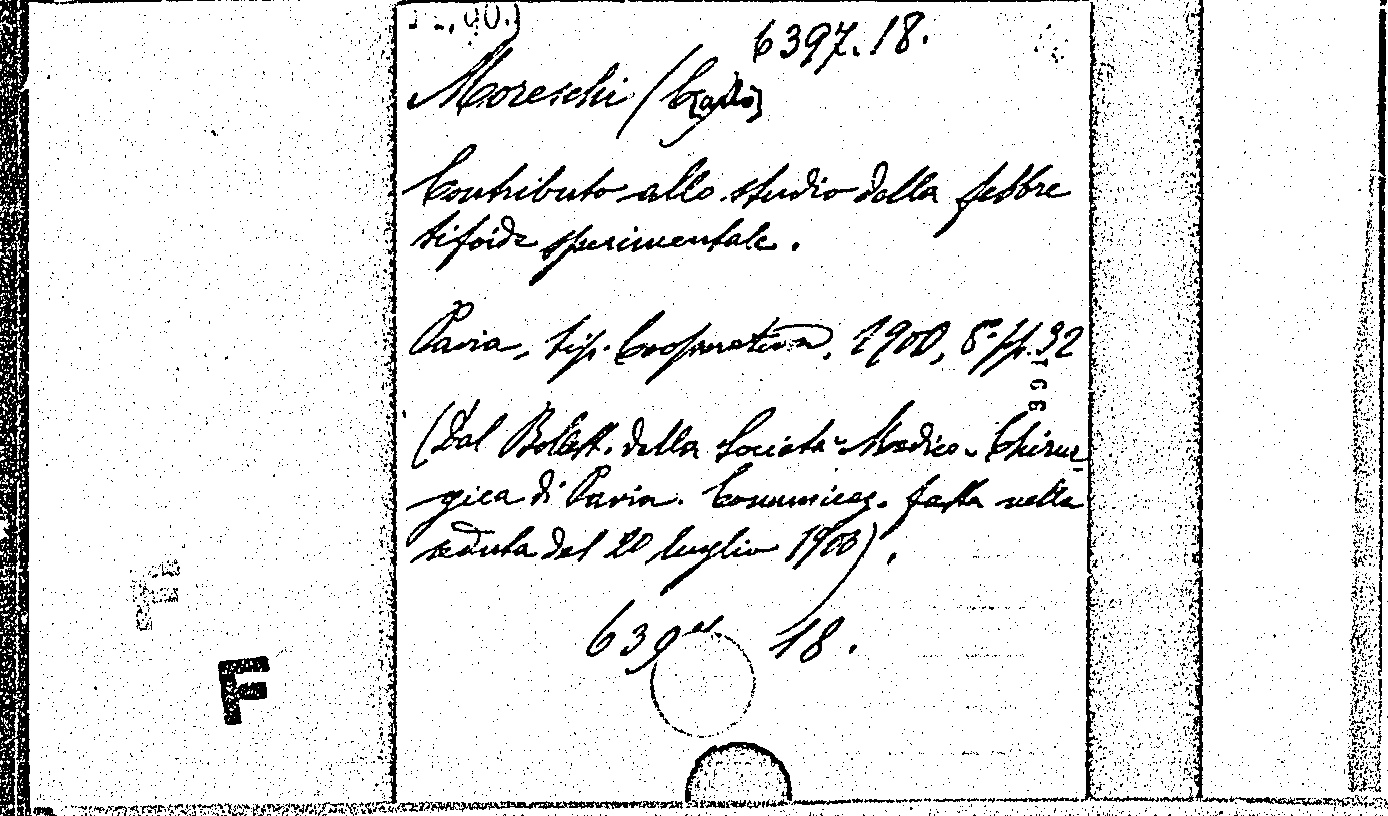 6397.18.
Moreschi (C[arlo]
Contributo allo studio della febbre
tifoide sperimentale.
Pavia, tip. Cooperativa, 1900, 8° pp. 32
(Dal Bolett. della Società Medico-Chirur-
gica di Pavia. Comunicaz. fatta nella
seduta del 20 luglio 1900).
639 18.
F
F